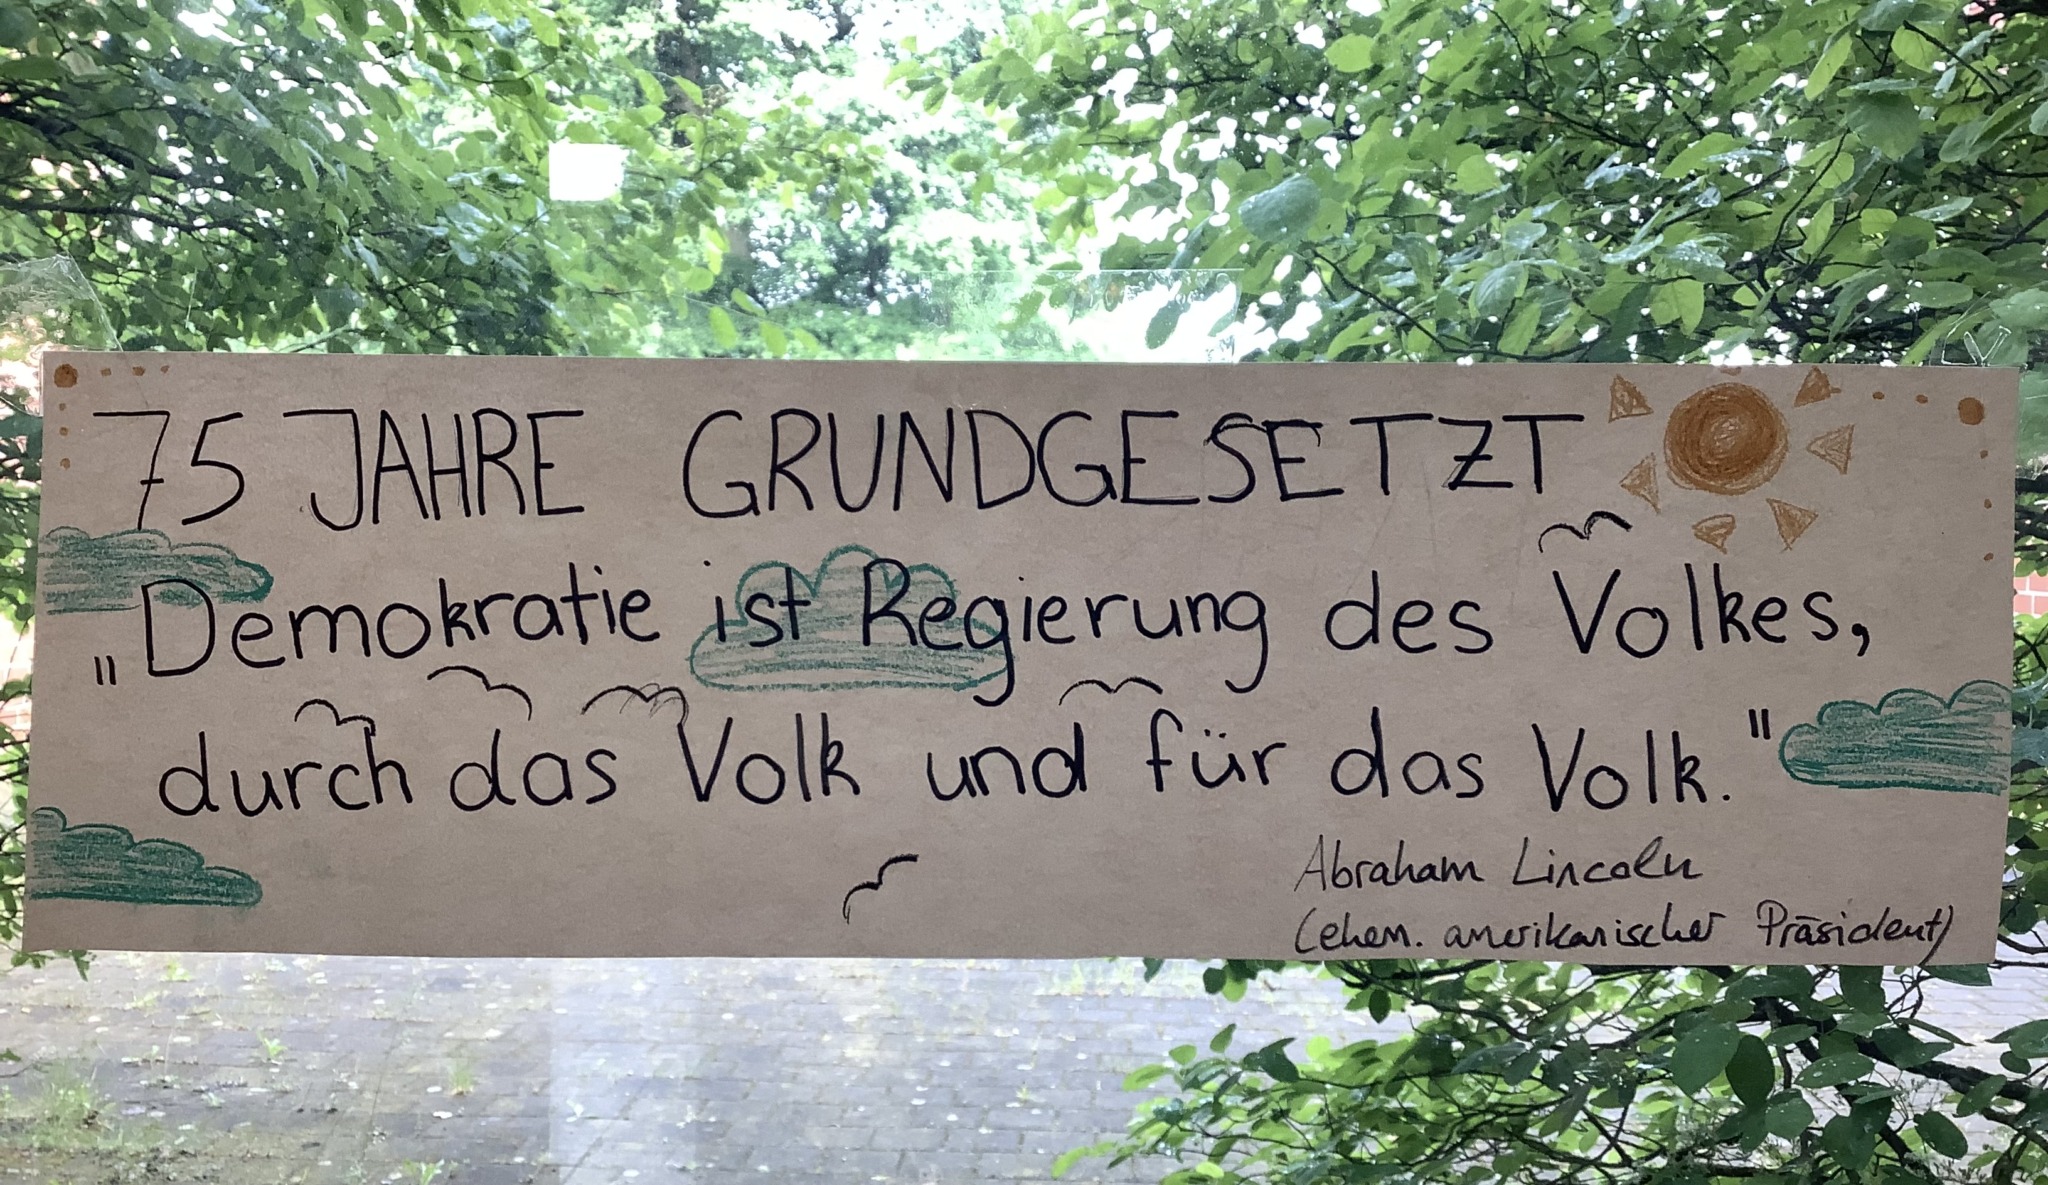 75 JAHRE GRUNDGESETZT
„Demokratie ist Regierung des Volkes,
durch das Volk und für das Volk."
Abraham Lincoln
(ehem. amerikanischer Präsident)